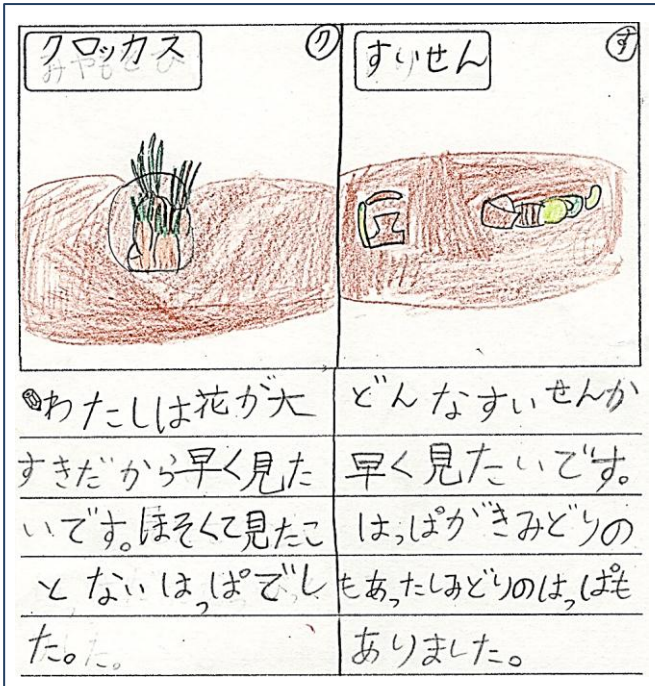 クロッカス
ク
わたしは花が大
すきだから早く見た
いです。ほそくて見たこ
とないはっぱでし
た。
すいせん
す
どんなすいせんか
早く見たいです。
はっぱがきみどりの
もあったしみどりのはっぱも
ありました。